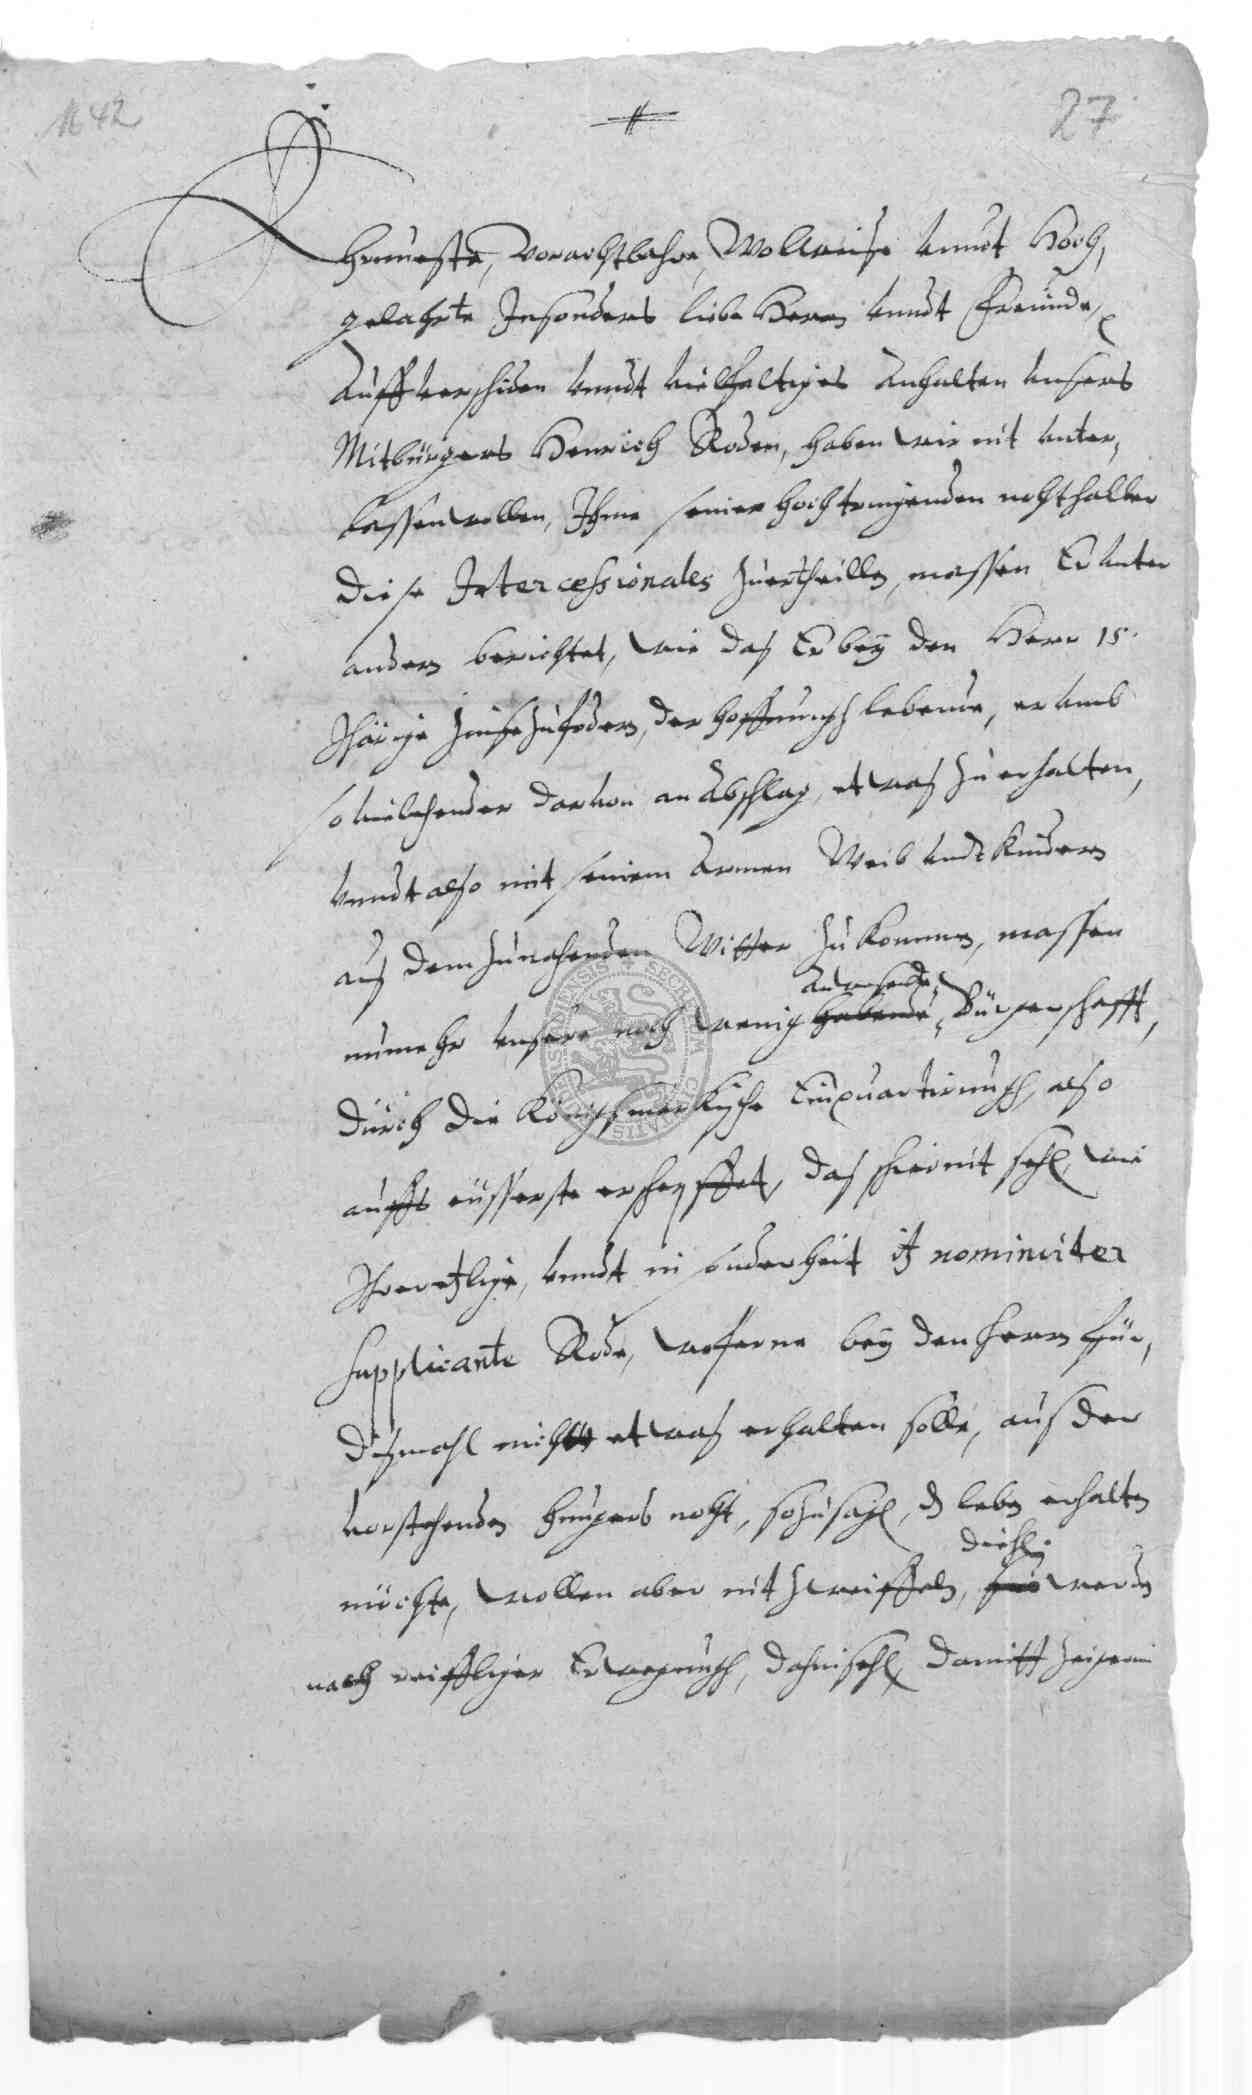 1642
27
Ehrnueste, Vorachtbahre, Wollweise vnndt Hoch,
gelahrte Insonders liebe Herrn vnndt Freunde,
Auff verschiden vnndt vielfaltiges Anhalten vnsers
Mitbürgers Henrich Roden, haben wir nit vnter,
lassen wollen, Ihme seiner hochtringenden nohthalber
diese Intercessionales zuertheillen, massen Er vnter
andern berichtet, wie daß Er bey den Herrn 15.
Jhärige Zinse zufodern, der hoffnungh lebend, er vmb
so viel ehender darvon an Abschlag, etwaß zu erhalten,
vnndt also mit seinem Armen Weib vndt Kindern
auß dem zunehenden Witter zu kommen, massen
anwesende
numehr vnsere noch wenig habende Bürgerschafft,
durch die Königsmärkische Einquartirungh, also
auffs eüsserste erschepffet, daß hiemit wie
vnndt in sonderheit nominiter
Supplicante Rode, woferne bey den Herrn für,
dißmahl nicht etwaß erhalten solle, auß der
vorstehenden hungers noht, leben erhalten
möchte, wollen aber nit zweiffeln, werden
nach reifflicher Erwegungh, damitt